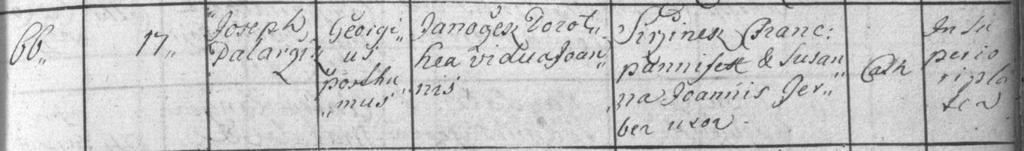 66„ 17„ Joseph Palargi: Georgi„ us posthu„ mus Janogez Dorot„ hea vidua Joan„ nis Sixinez Franc: pannifex & Susan„ na Joannis Ger„ ber uxor. Cath In Su perio ri plä tea